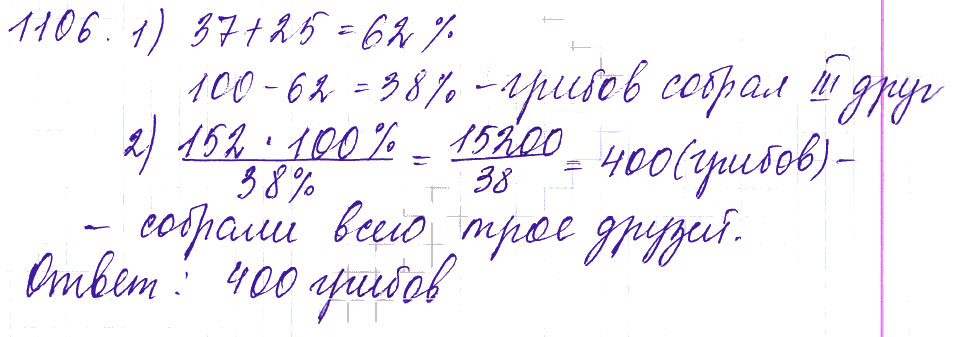 1106. 1) 37+25 = 62%
100 - 62 = 38% - грибов собрал III друг
2) (152 · 100%)/(38%) = 15200/38 = 400 (грибов) -
- собрали всего трое друзей.
Ответ: 400 грибов